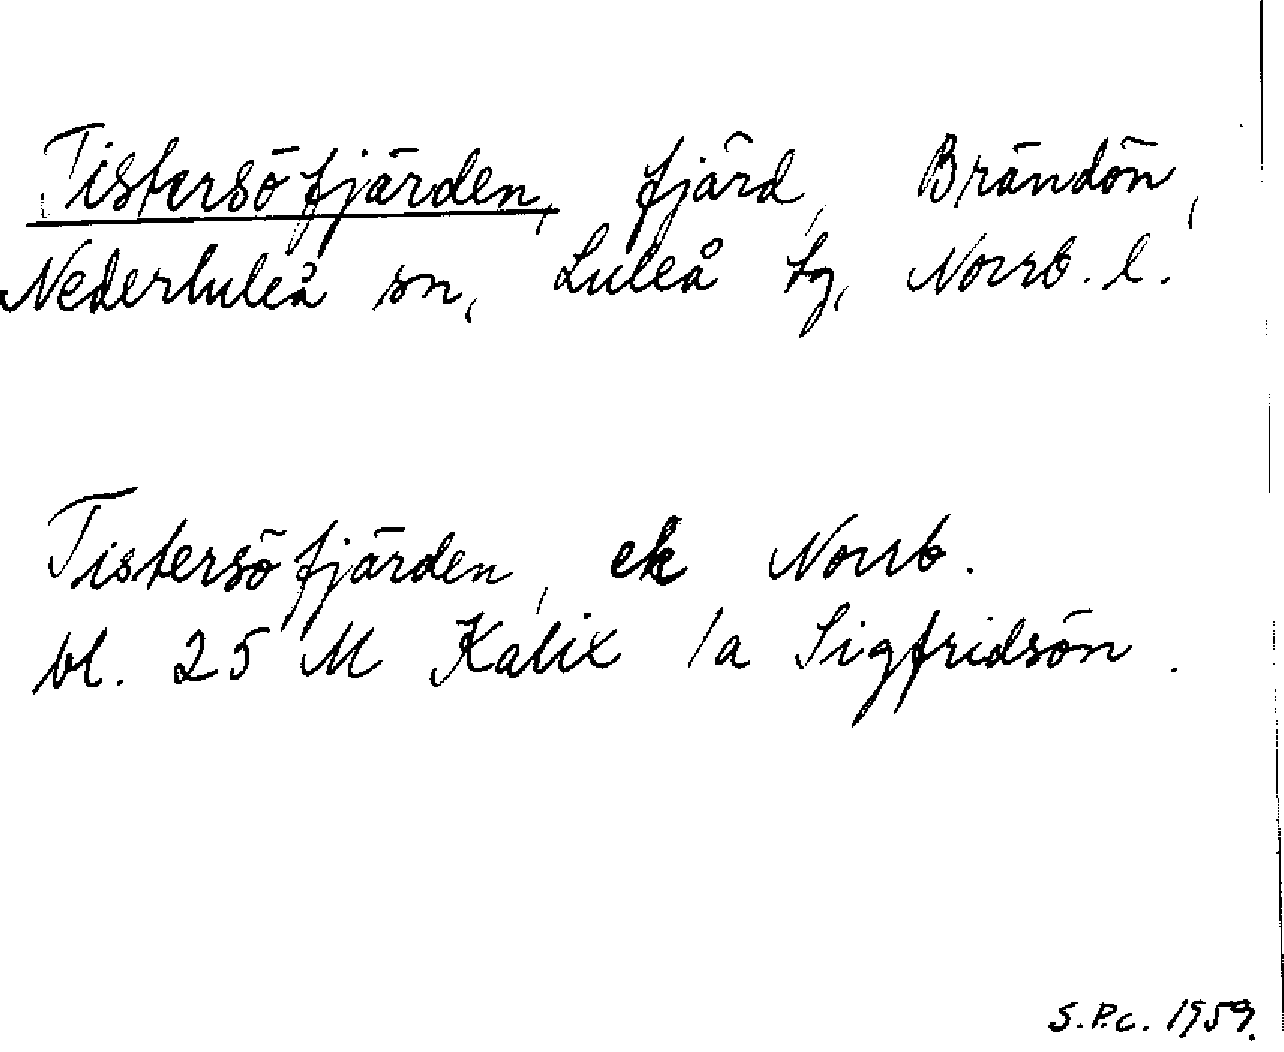 Tistersöfjärden, fjärd, Brändön,
Nederluleå sn, Luleå tg, Norrb. l.
Tistersöfjärden, ek Norrb.
bl. 25 M Kalix /a Sigfridsön.
S.P.c. 1959.